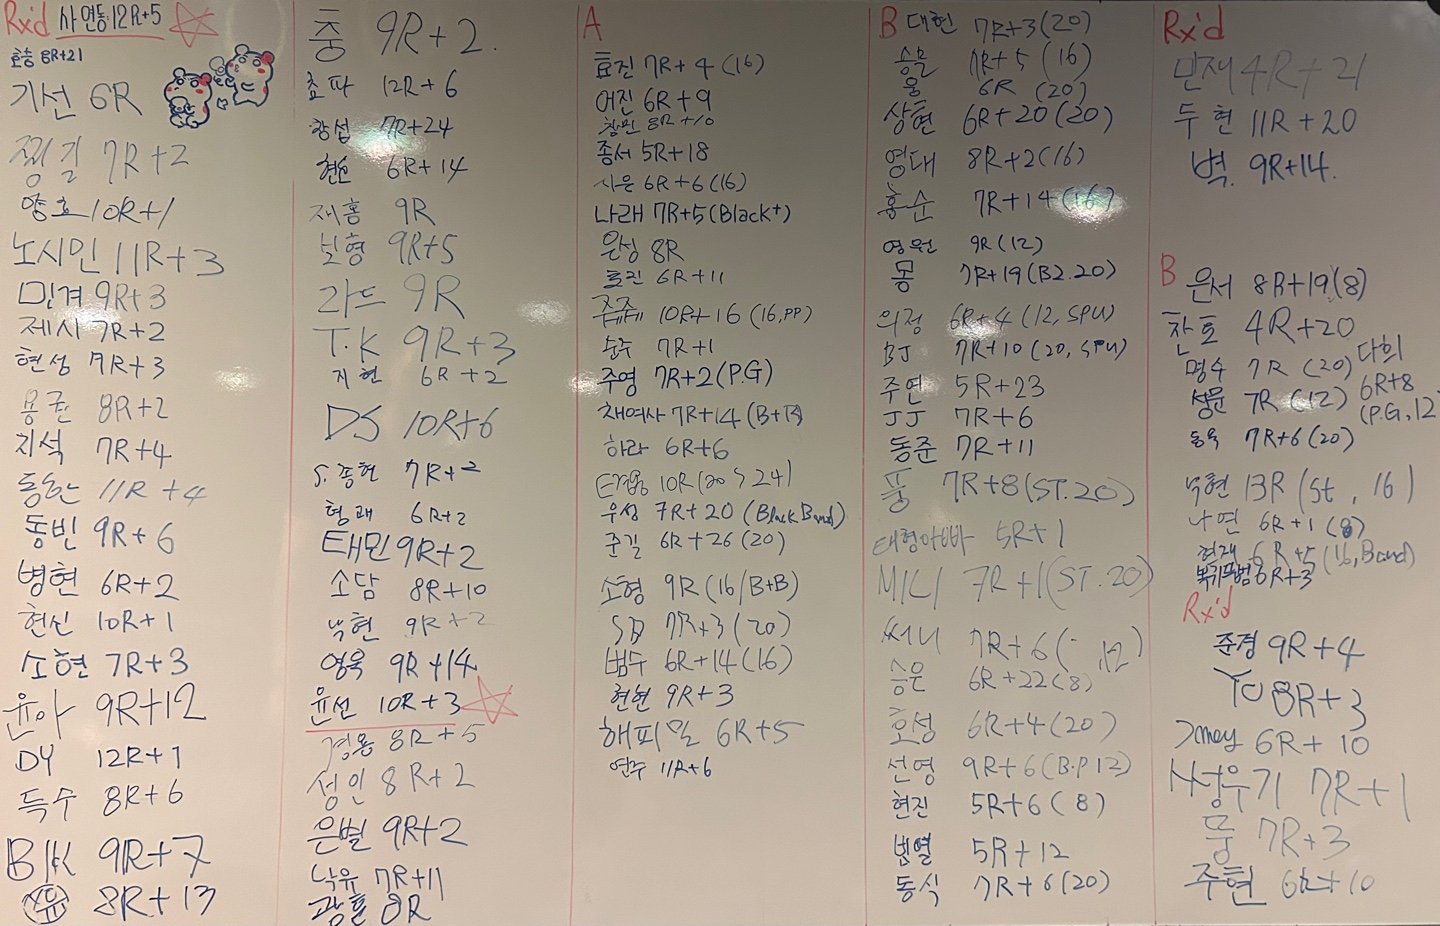 Rx'd 사연동 12R+5
효승 8R+21
기선 6R
찡길 7R+2
양호 10R+1
노시민 11R+3
민겨 9R+3
제시 7R+2
현성 7R+3
용준 8R+2
지석 7R+4
동환 11R+4
동빈 9R+6
병현 6R+2
현신 10R+1
소현 7R+3
윤아 9R+12
DY 12R+1
득수 8R+6
BK 9R+7
윤 8R+13
중 9R+2.
쵸파 12R+6
창섭 7R+24
현 6R+14
재홍 9R
보형 9R+5
라드 9R
T.K 9R+3
지현 6R+2
DS 10R+6
S.종현 7R+2
형래 6R+2
태민 9R+2
소담 8R+10
낙현 9R+2
영욱 9R+14
윤선 10R+3
경용 8R+5
성인 8R+2
은별 9R+2
낙유 7R+11
광훈 8R
A
효진 7R+4 (16)
어진 6R+9
창민 8R+10
종서 5R+18
시은 6R+6 (16)
나래 7R+5 (Black+)
은성 8R
효진 6R+11
10R+16 (16,PP)
순주 7R+1
주영 7R+2 (P.G)
채여사 7R+14 (B+B)
하라 6R+6
10R (20>24)
우성 7R+20 (Black Band)
준길 6R+26 (20)
소형 9R (16/B+B)
SD 7R+3 (20)
범수 6R+14 (16)
현현 9R+3
해피밀 6R+5
연주 11R+6
B 대현 7R+3 (20)
승윤 7R+5 (16)
율 6R (20)
상현 6R+20 (20)
영대 8R+2 (16)
홍순 7R+14 (16)
영원 9R (12)
몽 7R+19 (B2.20)
의정 6R+4 (12, SPU)
BJ 7R+10 (20, SPU)
주연 5R+23
JJ 7R+6
동준 7R+11
풍 7R+8 (ST.20)
태형아빠 5R+1
MILI 7R+1 (ST.20)
써니 7R+6 ( ,12)
승은 6R+22 (8)
호성 6R+4 (20)
선영 9R+6 (B.P 12)
현진 5R+6 (8)
변열 5R+12
동식 7R+6 (20)
Rx'd
민재 4R+21
두현 11R+20
벽. 9R+14.
B 은서 8R+19 (8)
찬호 4R+20
명수 7R (20)
다희 6R+8 (P.G, 12
성윤 7R (12)
동욱 7R+6 (20)
낙현 13R (St, 16)
나연 6R+1 (8)
현재 6R+5 (16, Band)
6R+3
Rx'd
준경 9R+4
YO 8R+3
6R+10
사성우기 7R+1
뭉 7R+3
주현 6R+10